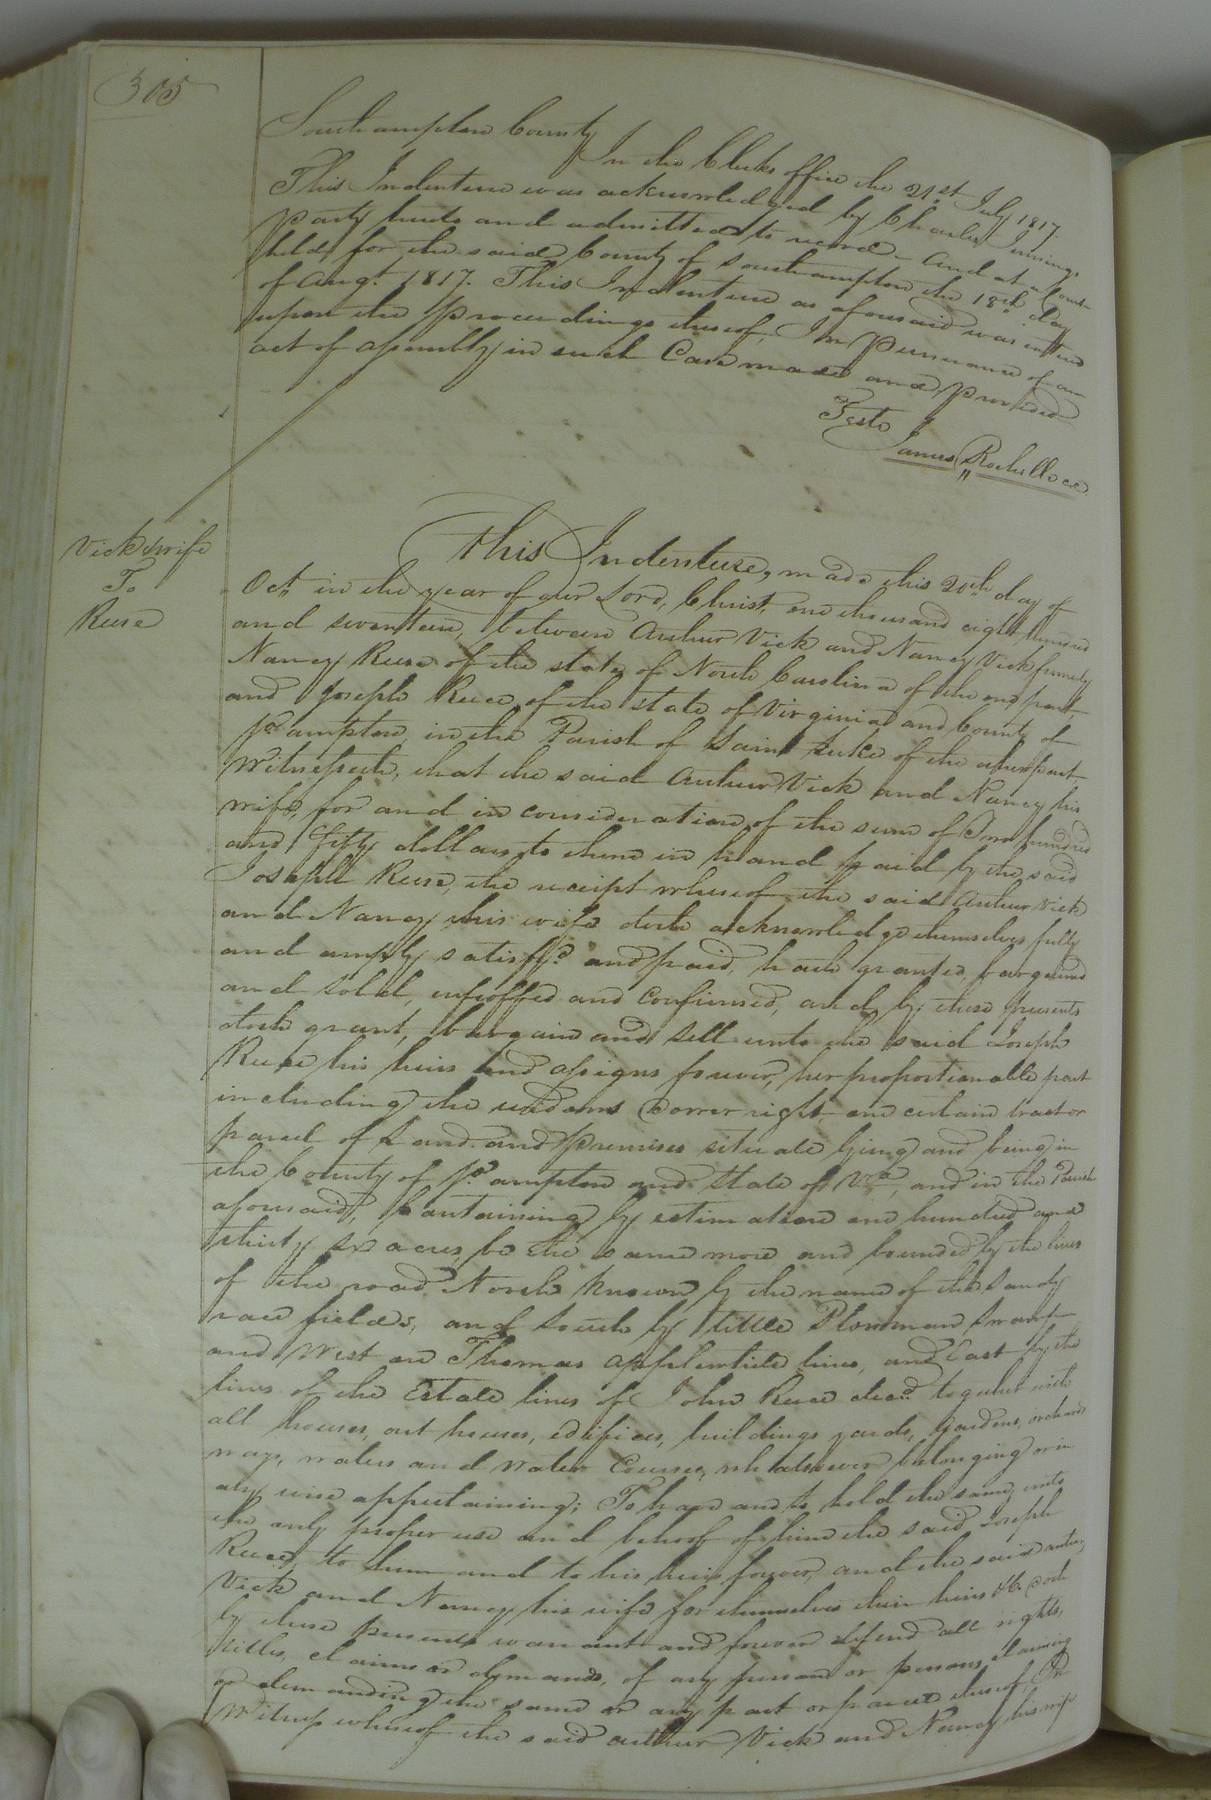 305
Southampton County
In the Clerks office the 21st July 1817.
This Indenture was acknowledged by Charles Innings
party hereto and admitted to record - And at a Court
held for the said County of Southampton the 18th day
of Augt. 1817. This Indenture as aforesaid was entered
upon the proceedings thereof, In Pursuance of an
act of assembly in such Case made and provided
Teste
James Rochelle
Vick & wife
To
Reese
This Indenture, made this 20th day of
Oct. in the year of our Lord, Christ, one thousand eight hundred
and seventeen, between Arthur Vick and Nancy Vick formerly
Nancy Reese of the state of North Carolina of the one part,
and Joseph Reese of the state of Virginia and County of
So.ampton, in the Parish of Saint Luke of the other part
Witnesseth, that the said Arthur Vick and Nancy his
wife, for and in consideration of the sum of hundred
and fifty dollars, to them in hand paid by the said
Joseph Reese, the receipt whereof the said Arthur Vick
and Nancy his wife doth acknowledge themselves fully
and amply satisfyd. and paid, hath granted, bargained
and sold, enfeoffed and confirmed, and by these presents
doth grant, bargain and sell unto the said Joseph
Reese his heirs and assigns forever, her proportionable part
including the widows Dower right one certain tract or
parcel of Land and premises situate lying and being in
the County of So.ampton and State of Va, and in the Parish
aforesaid, Containing by estimation one hundred and
thirty six acres, be the same more and bounded by the lines
of the road North known by the name of the Sandy
race fields, and South by little Plowman Swamp
and West on Thomas Applewhite lines, and East by the
lines of the Estate lines of John Reese decd. together with
all houses, out houses, edifices, buildings yards, Gardens, orchards
ways, waters and water Courses, whatsoever belonging or in
any wise appertaining; To have and to hold the same, unto
the only proper use and behoof of him the said Joseph
Reese, to him and to his heirs forever, and the said Arthur
Vick and Nancy his wife for themselves their heirs &c. doth
by these presents warrant and forever defend all rights,
titles, claims or demands, of any person or persons, claiming
or demanding the same or any part or parcel thereof. In
Witness whereof the said Arthur Vick and Nancy his wife